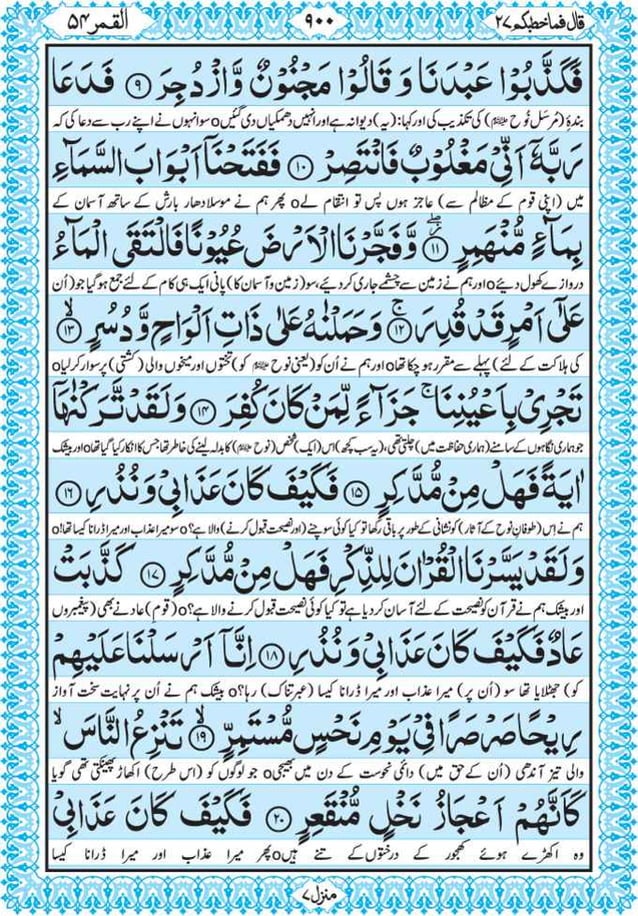 القمر ۵۴ ۹۰۰ قال فما خطبكم ۲۷
فَكَذَّبُوْا عَبْدَنَا وَ قَالُوْا مَجْنُوْنٌ وَّازْدُجِرَ ﴿۹﴾ فَدَعَا
بندۂِ (مُرسَل نُوح علیہ السلام) کی تکذیب کی اور کہا: (یہ) دیوانہ ہے اور انہیں دھمکیاں دی گئیںo سو انہوں نے اپنے رب سے دعا کی کہ
رَبَّهٗۤ اَنِّیْ مَغْلُوْبٌ فَانْتَصِرْ ﴿۱۰﴾ فَفَتَحْنَاۤ اَبْوَابَ السَّمَآءِ
میں (اپنی قوم کے مظالم سے) عاجز ہوں پس تو انتقام لےo پھر ہم نے موسلا دھار بارش کے ساتھ آسمان کے
بِمَآءٍ مُّنْهَمِرٍ ﴿۱۱﴾ وَّ فَجَّرْنَا الْاَرْضَ عُیُوْنًا فَالْتَقَی الْمَآءُ
دروازے کھول دیئےo اور ہم نے زمین سے چشمے جاری کر دیئے، سو (زمین و آسمان کا) پانی ایک ہی کام کے لئے جمع ہو گیا جو (اُن
عَلٰۤی اَمْرٍ قَدْ قُدِرَ ﴿۱۲﴾ وَ حَمَلْنٰهُ عَلٰی ذَاتِ اَلْوَاحٍ وَّ دُسُرٍ ﴿۱۳﴾
کی ہلاکت کے لئے) پہلے سے مقرر ہو چکا تھاo اور ہم نے اُن کو (یعنی نوح علیہ السلام کو) تختوں اور میخوں والی (کشتی) پر سوار کر لیاo
تَجْرِیْ بِاَعْیُنِنَا ۚ جَزَآءً لِّمَنْ كَانَ كُفِرَ ﴿۱۴﴾ وَ لَقَدْ تَّرَكْنٰهَاۤ
جو ہماری نگاہوں کے سامنے (ہماری حفاظت میں) چلتی تھی، (یہ سب کچھ) اس (ایک) شخص (نوح علیہ السلام) کا بدلہ لینے کی خاطر تھا جس کا انکار کیا گیا تھاo اور بیشک
اٰیَةً فَهَلْ مِنْ مُّدَّكِرٍ ﴿۱۵﴾ فَكَیْفَ كَانَ عَذَابِیْ وَ نُذُرِ ﴿۱۶﴾
ہم نے اِس (طوفانِ نوح کے آثار) کو نشانی کے طور پر باقی رکھا تو کیا کوئی سوچنے (اور نصیحت قبول کرنے) والا ہے؟o سو میرا عذاب اور میرا ڈرانا کیسا تھا؟o
وَ لَقَدْ یَسَّرْنَا الْقُرْاٰنَ لِلذِّكْرِ فَهَلْ مِنْ مُّدَّكِرٍ ﴿۱۷﴾ كَذَّبَتْ
اور بیشک ہم نے قرآن کو نصیحت کے لئے آسان کر دیا ہے تو کیا کوئی نصیحت قبول کرنے والا ہے؟o (قومِ) عاد نے بھی (پیغمبروں
عَادٌ فَكَیْفَ كَانَ عَذَابِیْ وَ نُذُرِ ﴿۱۸﴾ اِنَّاۤ اَرْسَلْنَا عَلَیْهِمْ
کو) جھٹلایا تھا سو (اُن پر) میرا عذاب اور میرا ڈرانا کیسا (عبرتناک) رہا؟o بیشک ہم نے اُن پر نہایت سخت آواز
رِیْحًا صَرْصَرًا فِیْ یَوْمِ نَحْسٍ مُّسْتَمِرٍّ ﴿۱۹﴾ تَنْزِعُ النَّاسَ ۙ
والی تیز آندھی (اُن کے حق میں) دائمی نحوست کے دن میں بھیجیo جو لوگوں کو (اس طرح) اکھاڑ پھینکتی تھی گویا
كَاَنَّهُمْ اَعْجَازُ نَخْلٍ مُّنْقَعِرٍ ﴿۲۰﴾ فَكَیْفَ كَانَ عَذَابِیْ
وہ اکھڑے ہوئے کھجور کے درختوں کے تنے ہیںo پھر میرا عذاب اور میرا ڈرانا کیسا
منزل ۷